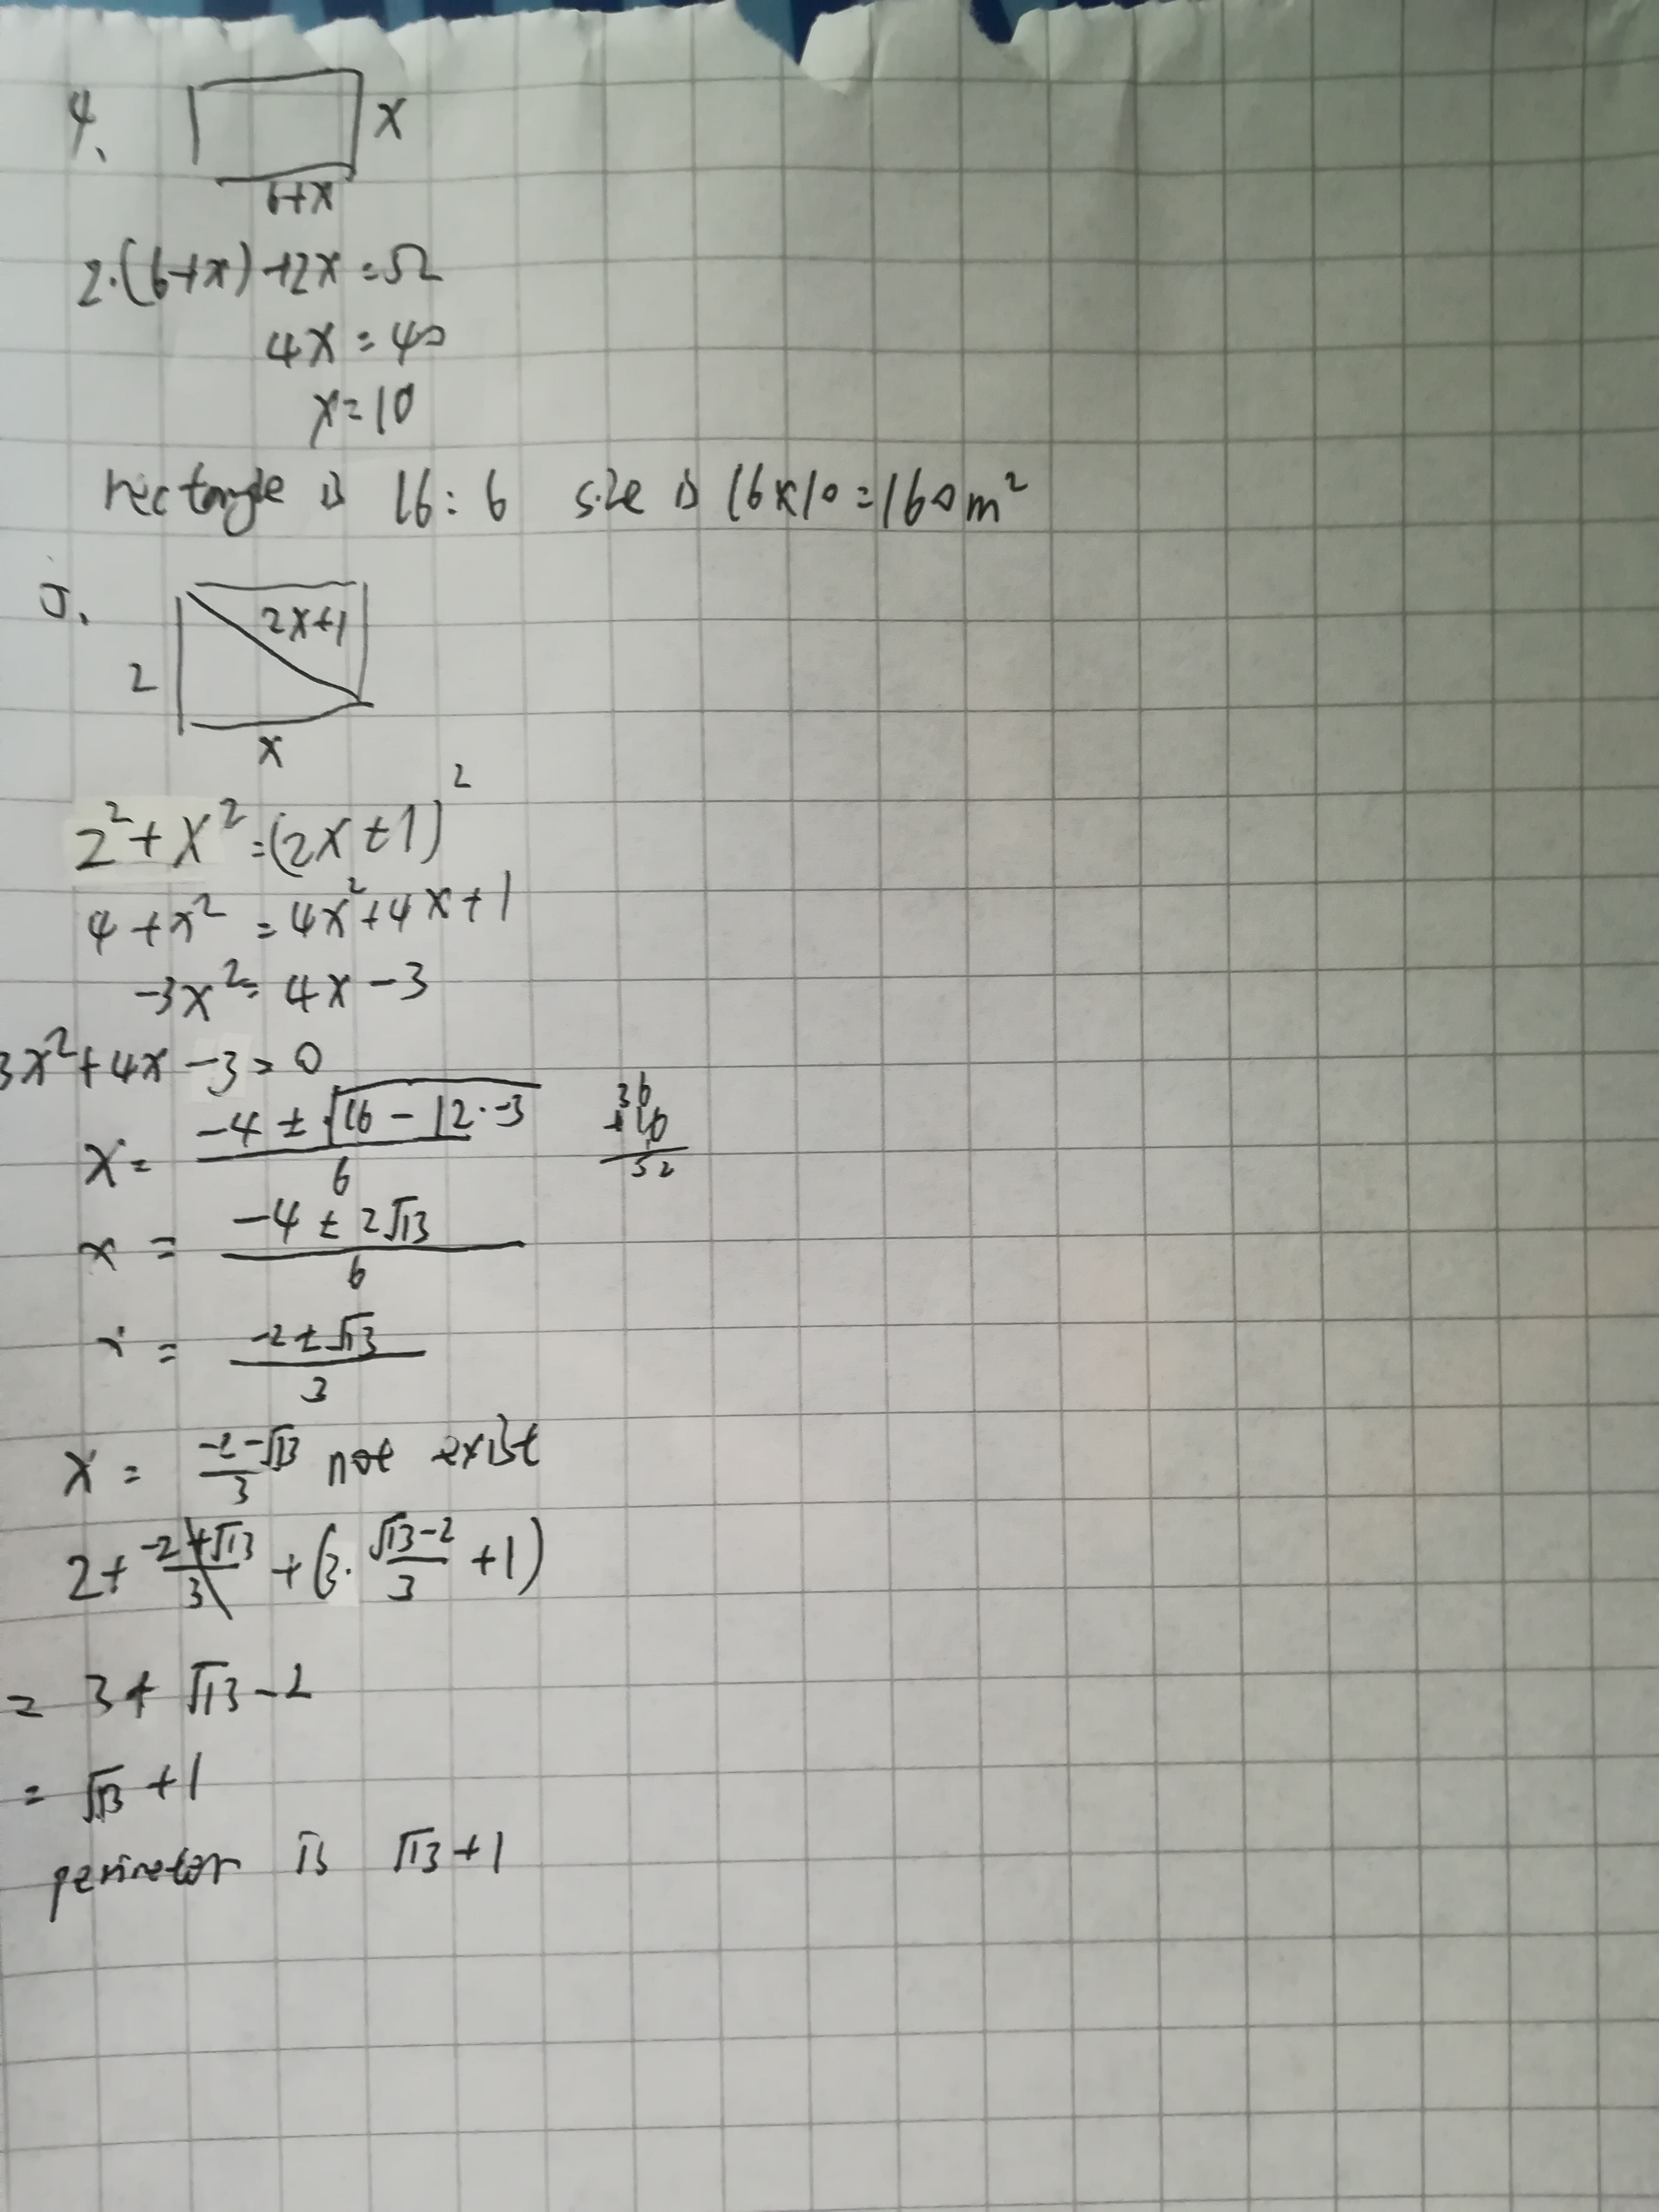 4.
x
6+x
2·(6+x)+2x=52
4x=40
x=10
rectangle is 16:6 size is 16x10=160m²
5.
2x+1
2
x
2²+x²=(2x+1)²
4+x²=4x²+4x+1
-3x²=4x-3
3x²+4x-3=0
x=(-4±√(16-12·-3))/6
36
+16
52
x=(-4±2√13)/6
x=(-2±√13)/3
x=(-2-√13)/3 not exist
2+(-2+√13)/3+(3·(√13-2)/3+1)
=3+√13-2
=√13+1
perimetor is √13+1